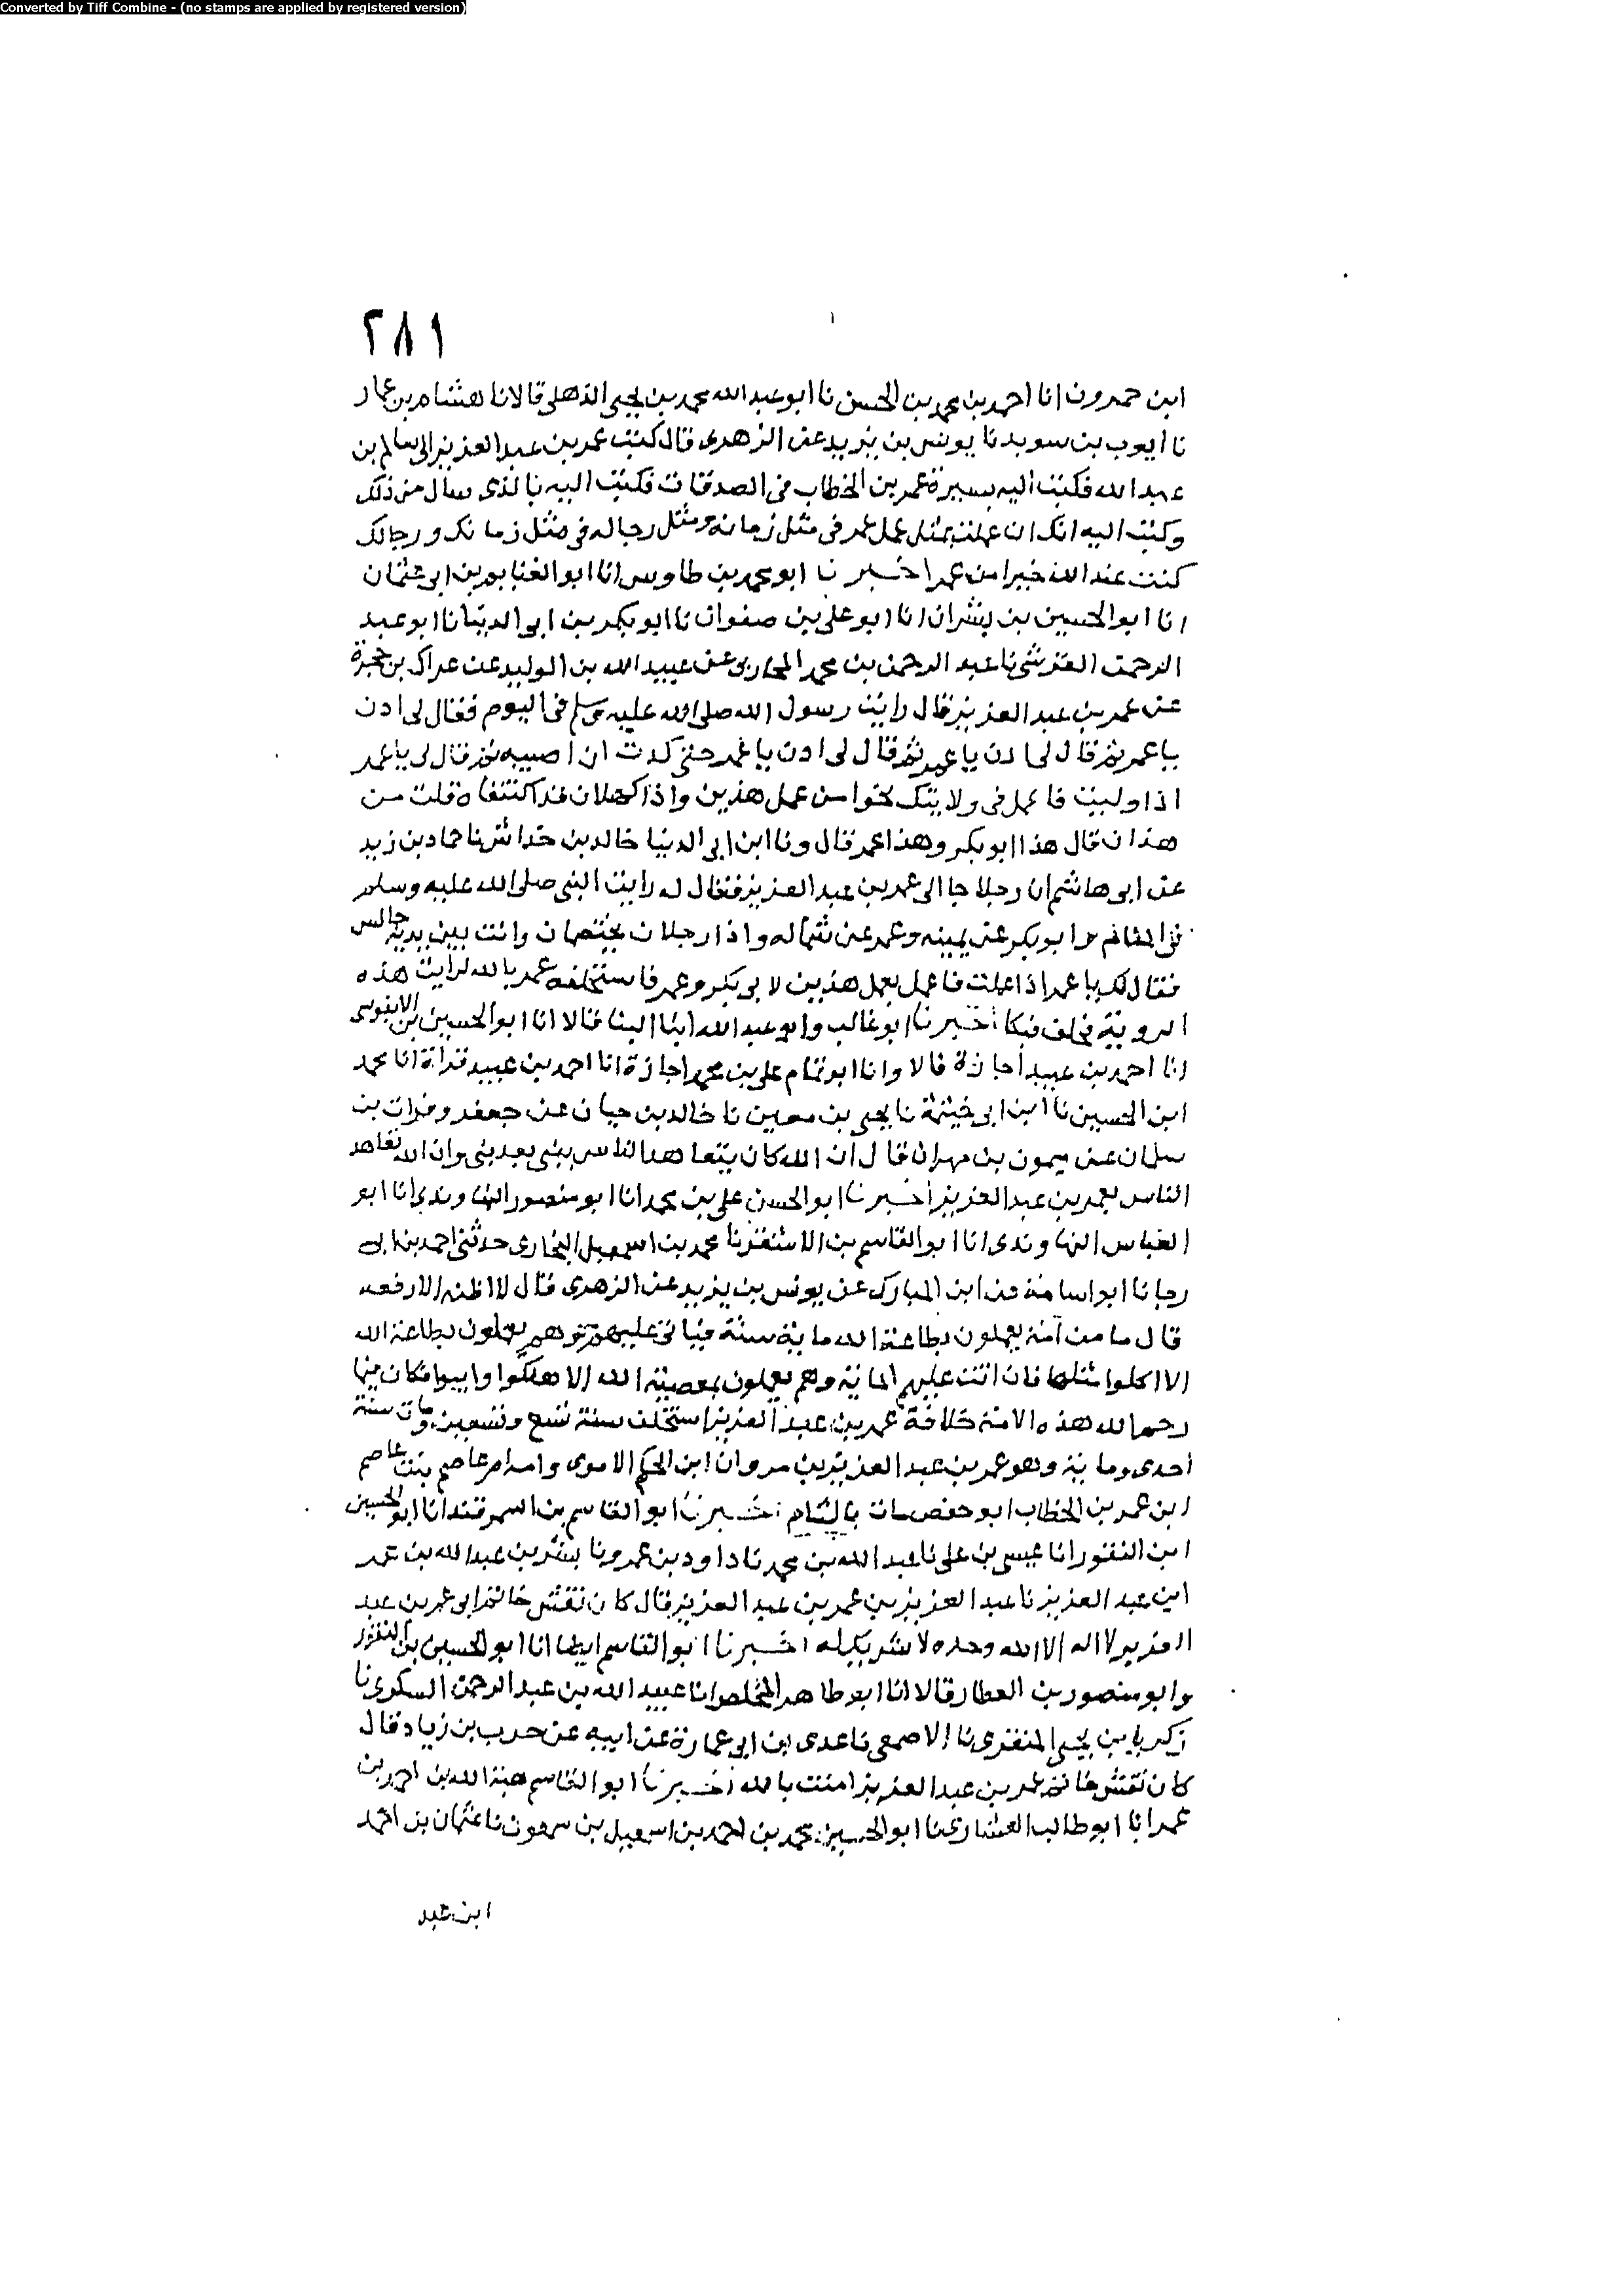 Converted by Tiff Combine - (no stamps are applied by registered version)
٢٨١
ابن حمدون انا احمد بن محمد بن الحسن نا ابو عبد الله محمد بن يحيى الذهلي قالا نا هشام بن عمار
نا ايوب بن سويد نا يونس بن يزيد عن الزهري قال كتب عمر بن عبد العزيز الى سالم بن
عبد الله فكتب اليه بسيرة عمر بن الخطاب في الصدقات فكتب اليه بالذي سال من ذلك
وكتب اليه انك ان عملت بمثل عمل عمر في مثل زمانه ومثل رجاله في مثل زمانك ورجالك
كنت عند الله خيرا من عمر اخبرنا ابو محمد بن طاوس انا ابو الغنايم بن ابي عثمان
انا ابو الحسين بن بشران انا ابو علي بن صفوان نا ابو بكر بن ابي الدنيا نا ابو عبد
الرحمن القرشي نا عبد الرحمن بن محمد المحاربي عن عبيد الله بن الوليد عن عراك بن حجرة
عن عمر بن عبد العزيز قال رايت رسول الله صلى الله عليه وسلم في اليوم فقال لي ادن
يا عمر ثم قال لي ادن يا عمر ثم قال لي ادن يا عمر حتى كدت ان اصيبه ثم قال لي يا عمر
اذا وليت فاعمل في ولايتك نحوا من عمل هذين واذا كهلان قد اكتنفاه قلت من
هذان قال هذا ابو بكر وهذا عمر قال ونا ابن ابي الدنيا خالد بن خداش نا حماد بن زيد
عن ابي هاشم ان رجلا جا الى عمر بن عبد العزيز فقال له رايت النبي صلى الله عليه وسلم
في المنام وابو بكر عن يمينه وعمر عن شماله واذا رجلان يختصمان وانت بين يديه جالس
فقال لك يا عمر اذا عملت فاعمل بعمل هذين لابي بكر وعمر فاستحلفه عمر بالله لرايت هذه
الروية فحلف فبكا اخبرنا ابو غالب وابو عبد الله ابنا البنا قالا انا ابو الحسين بن الابنوسي
انا احمد بن عبيد اجازة قالا وانا ابو تمام علي بن محمد اجازة انا احمد بن عبيد قراة انا محمد
ابن الحسين نا ابن ابي خيثمة نا يحيى بن معين نا خالد بن حيان عن جعفر وفرات بن
سلمان عن ميمون بن مهران قال ان الله كان يتعاهد الناس بنبي بعد نبي وان الله تعاهد
الناس بعمر بن عبد العزيز اخبرنا ابو الحسن علي بن محمد انا ابو منصور النهاوندي انا ابو
العباس النهاوندي انا ابو القاسم بن الاشقر نا محمد بن اسمعيل البخاري حدثني احمد بن ابي
رجا نا ابو اسامة عن ابن المبارك عن يونس بن يزيد عن الزهري قال لا اظنه الا رفعه
قال ما من امة يعملون بطاعة الله ماية سنة فياتي عليهم وهم يعملون بطاعة الله
الا اكلوا مثلها فان اتت عليهم الماية وهم يعملون بمعصية الله الا هلكوا وابيدوا فكان مما
رحم الله هذه الامة خلافة عمر بن عبد العزيز استخلف سنة تسع وتسعين ومات سنة
احدى وماية وهو عمر بن عبد العزيز بن مروان ابن الحكم الاموي وامه ام عاصم بنت عاصم
ابن عمر بن الخطاب ابو حفص مات بالشام اخبرنا ابو القاسم بن السمرقندي انا ابو الحسين
ابن النقور انا عيسى بن علي نا عبد الله بن محمد نا داود بن عمرو نا بشر بن عبد الله بن عمر
ابن عبد العزيز نا عبد العزيز بن عمر بن عبد العزيز قال كان نقش خاتم ابي عمر بن عبد
العزيز لا اله الا الله وحده لا شريك له اخبرنا ابو القاسم ايضا انا ابو الحسين بن النقور
وابو منصور بن العطار قالا انا ابو طاهر المخلص انا عبيد الله بن عبد الرحمن السكري نا
زكريا بن يحيى المنقري نا الاصمعي نا عدي بن ابي عمارة عن ابيه عن حرب بن زياد قال
كان نقش خاتم عمر بن عبد العزيز امنت بالله اخبرنا ابو القاسم هبة الله بن احمد بن
عمر انا ابو طالب العشاري نا ابو الحسين محمد بن احمد بن اسمعيل بن سمعون نا عثمان بن احمد
ابن عبد